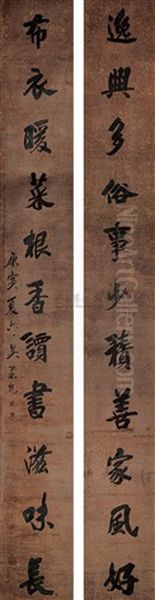 逸興多俗事少積善家風好
布衣暖菜根香讀書滋味長
庚寅夏六吳榮光